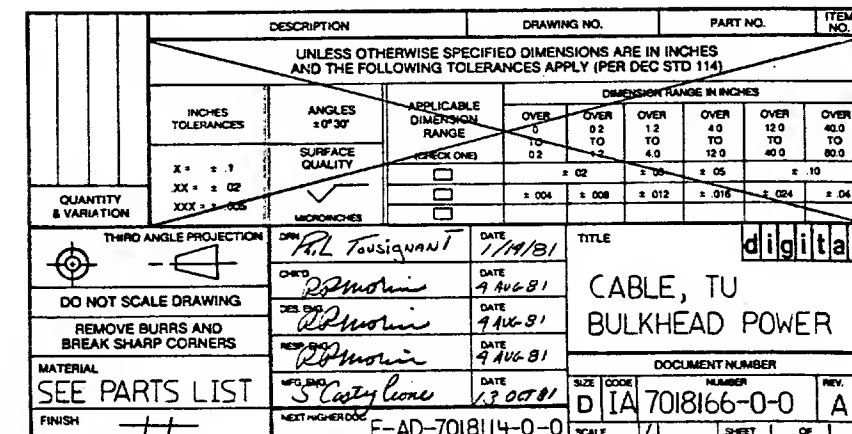 DESCRIPTION DRAWING NO. PART NO. ITEM NO.
UNLESS OTHERWISE SPECIFIED DIMENSIONS ARE IN INCHES
AND THE FOLLOWING TOLERANCES APPLY (PER DEC STD 114)
INCHES TOLERANCES
X = ± .1
.XX = ± 02
XXX = ± 005
ANGLES
±0°30'
SURFACE QUALITY
MICROINCHES
APPLICABLE DIMENSION RANGE
(CHECK ONE)
DIMENSION RANGE IN INCHES
OVER 0 TO 0.2
OVER 0.2 TO 1.2
OVER 1.2 TO 4.0
OVER 4.0 TO 12.0
OVER 12.0 TO 40.0
OVER 40.0 TO 80.0
± 02 ± 03 ± 05 ± .10
± 004 ± 008 ± 012 ± .016 ± .024 ± .04
QUANTITY & VARIATION
THIRD ANGLE PROJECTION
DO NOT SCALE DRAWING
REMOVE BURRS AND
BREAK SHARP CORNERS
MATERIAL
SEE PARTS LIST
FINISH
DRN R.L Tousignant DATE 1/19/81
CHK'D RPMorin DATE 9 AUG 81
DES. ENG. RPMorin DATE 9 AUG 81
RESP. ENG. RPMorin DATE 9 AUG 81
MFG. ENG. S Castiglione DATE 13 OCT 81
NEXT HIGHER DOC
E-AD-7018114-0-0
TITLE
digita
CABLE, TU
BULKHEAD POWER
DOCUMENT NUMBER
SIZE CODE NUMBER REV.
D IA 7018166-0-0 A
SCALE / SHEET 1 OF 1